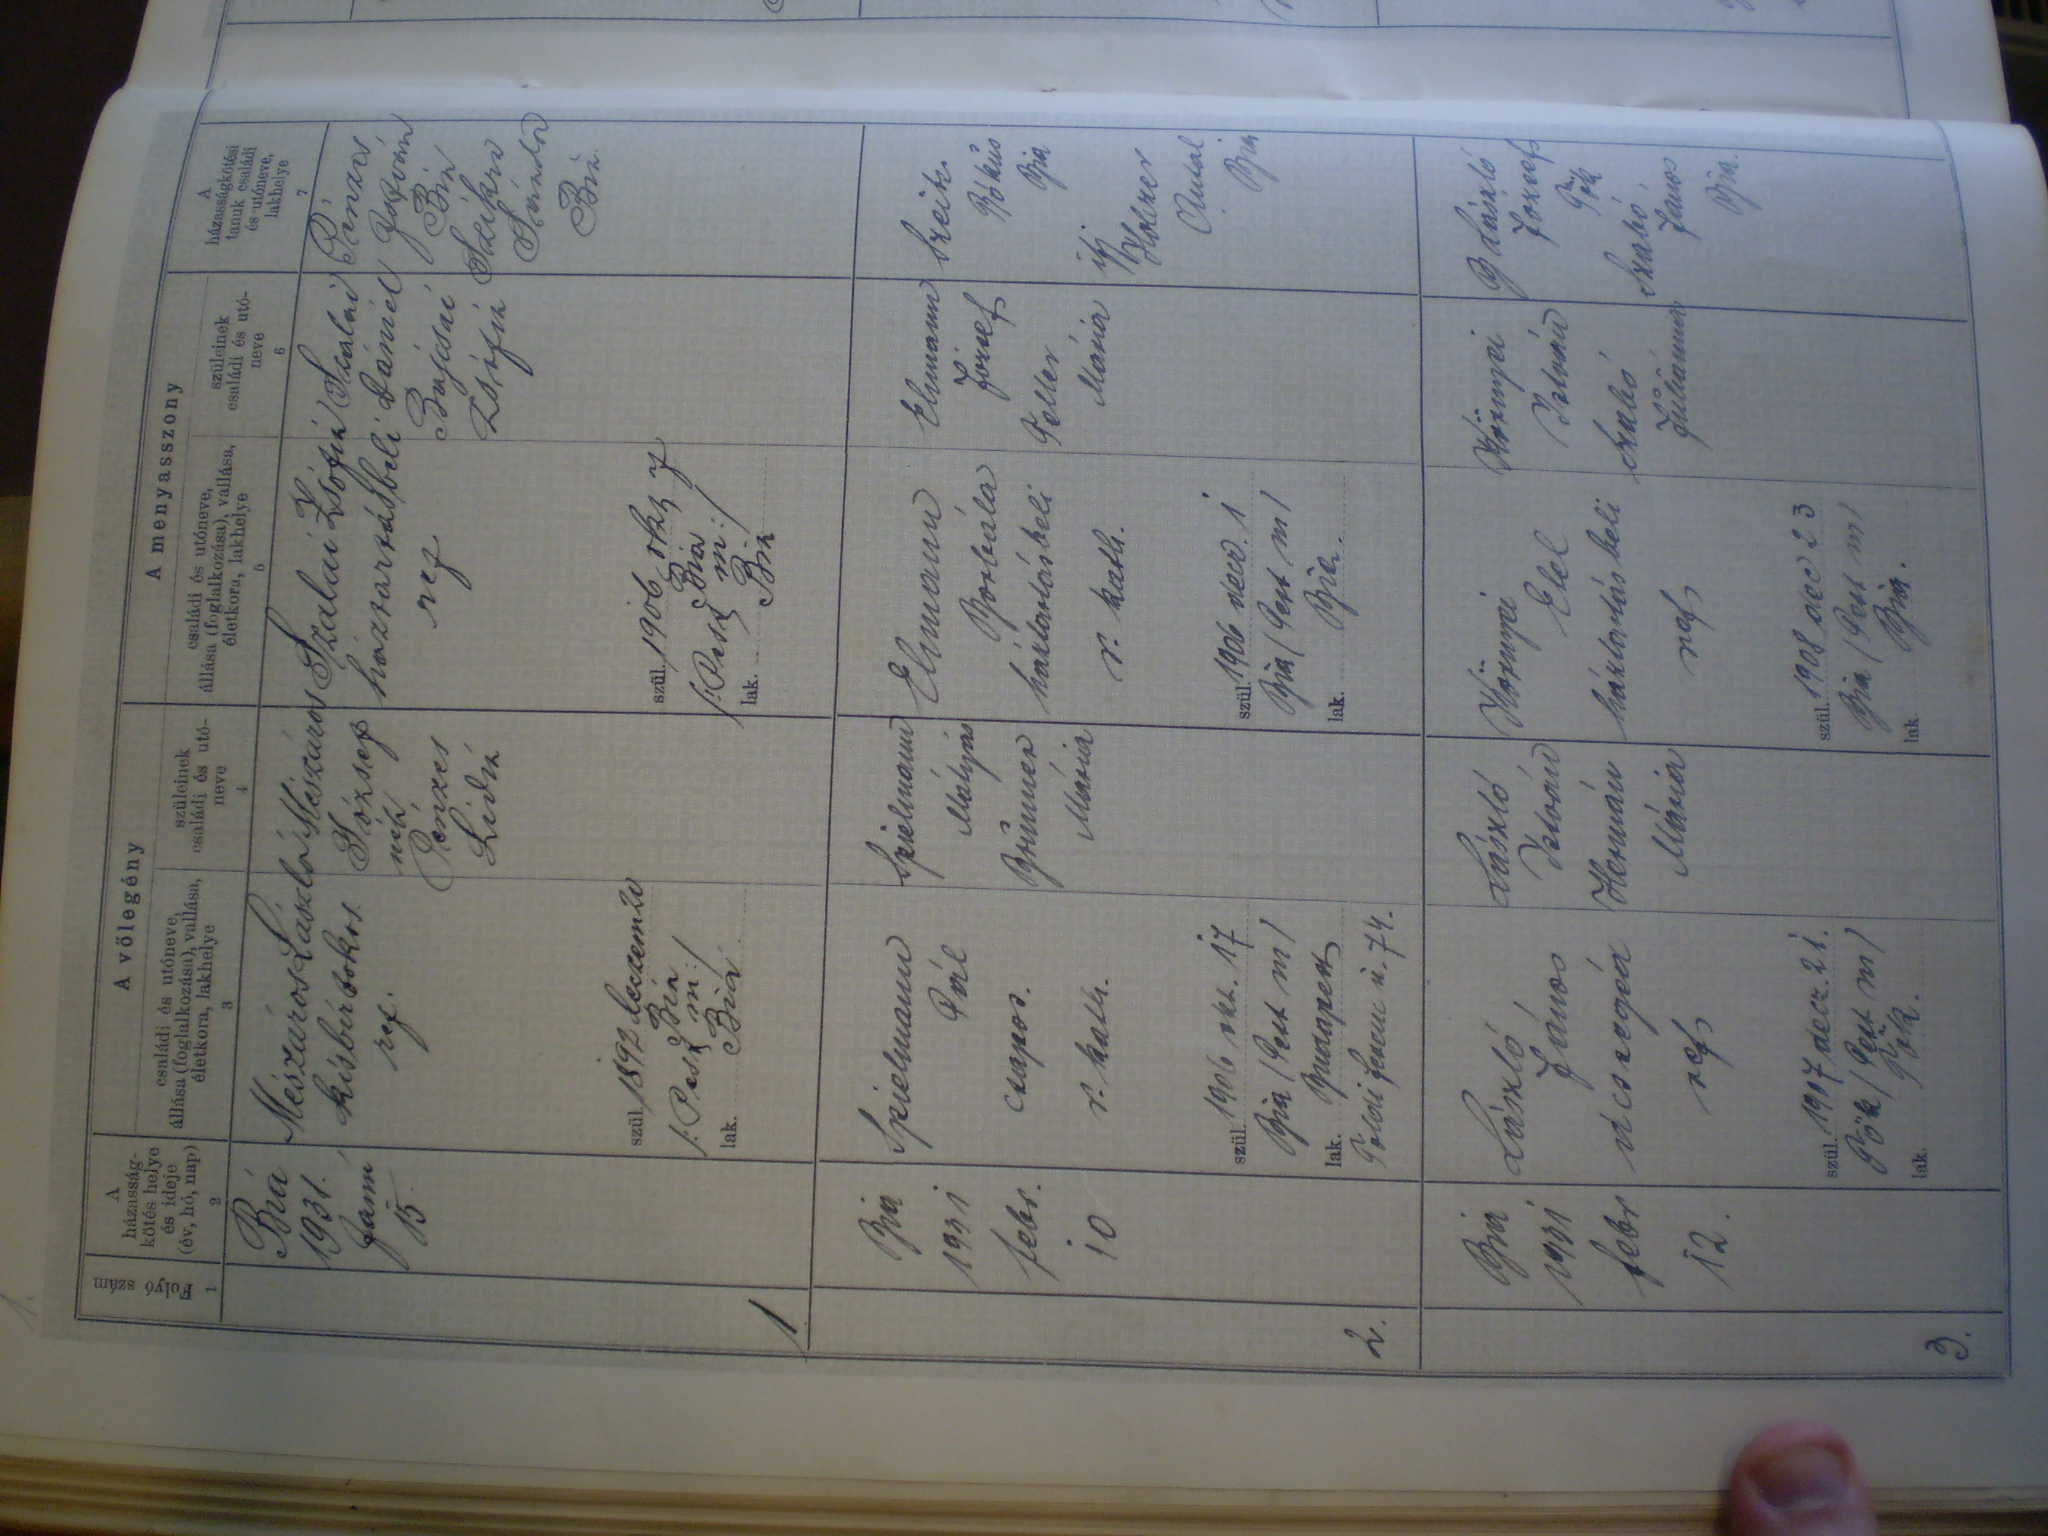 1.
A menyasszony
A vőlegény
Folyó szám
A
házasság-
kötés helye
és ideje
(év, hó, nap)
családi és utóneve,
állása (foglalkozása), vallása,
életkora, lakhelye
szüleinek
családi és utó-
neve
családi és utóneve,
állása (foglalkozása), vallása,
életkora, lakhelye
szüleinek
családi és utó-
neve
A
házasságkötési
tanuk családi
és utóneve,
lakhelye
1
2
3
4
5
6
7
1
Biá
1931.
Janu
15.
Mészáros László
kisbirtokos
ref.
szül. 1892
/: Pest m:/
lak. Biá
Mészáros
József
Pénzes
Lidia
Szalai Zsófia
háztartásbeli
ref
szül. 1906 okt 7
Bia
/: Pest m:/
lak. Bia
Szalai
Dániel
Bajcsai
Zsófia
Pénzes
István
Bia
Sándor
Bia
2.
Bia
1931
febr.
10
Spielmann
Pál
csapos.
r. kath.
szül. 1906 okt. 17
Bia / Pest m /
lak. Budapest
ferenc u. 74.
Spielmann
Mátyás
Brunner
Mária
Elmann
Borbála
háztartásbeli
r. kath.
szül. 1906 decz. 1
Bia / Pest m /
lak. Bia.
Elmann
József
Feller
Mária
Szeitz
Rókus
Bia
ifj
Holczer
Antal
Bia
3.
Bia
1931
febr
12.
László
János
ref
szül. 1907 decz. 21.
Tök / Pest m /
lak. Tök.
László
István
Hermán
Mária
Környei
Etel
háztartásbeli
ref
szül. 1908 dec 23
Bia / Pest m /
lak. Bia.
Környei
István
Szabó
Juliánna
B László
József
Tök
Szabó
János
Bia.